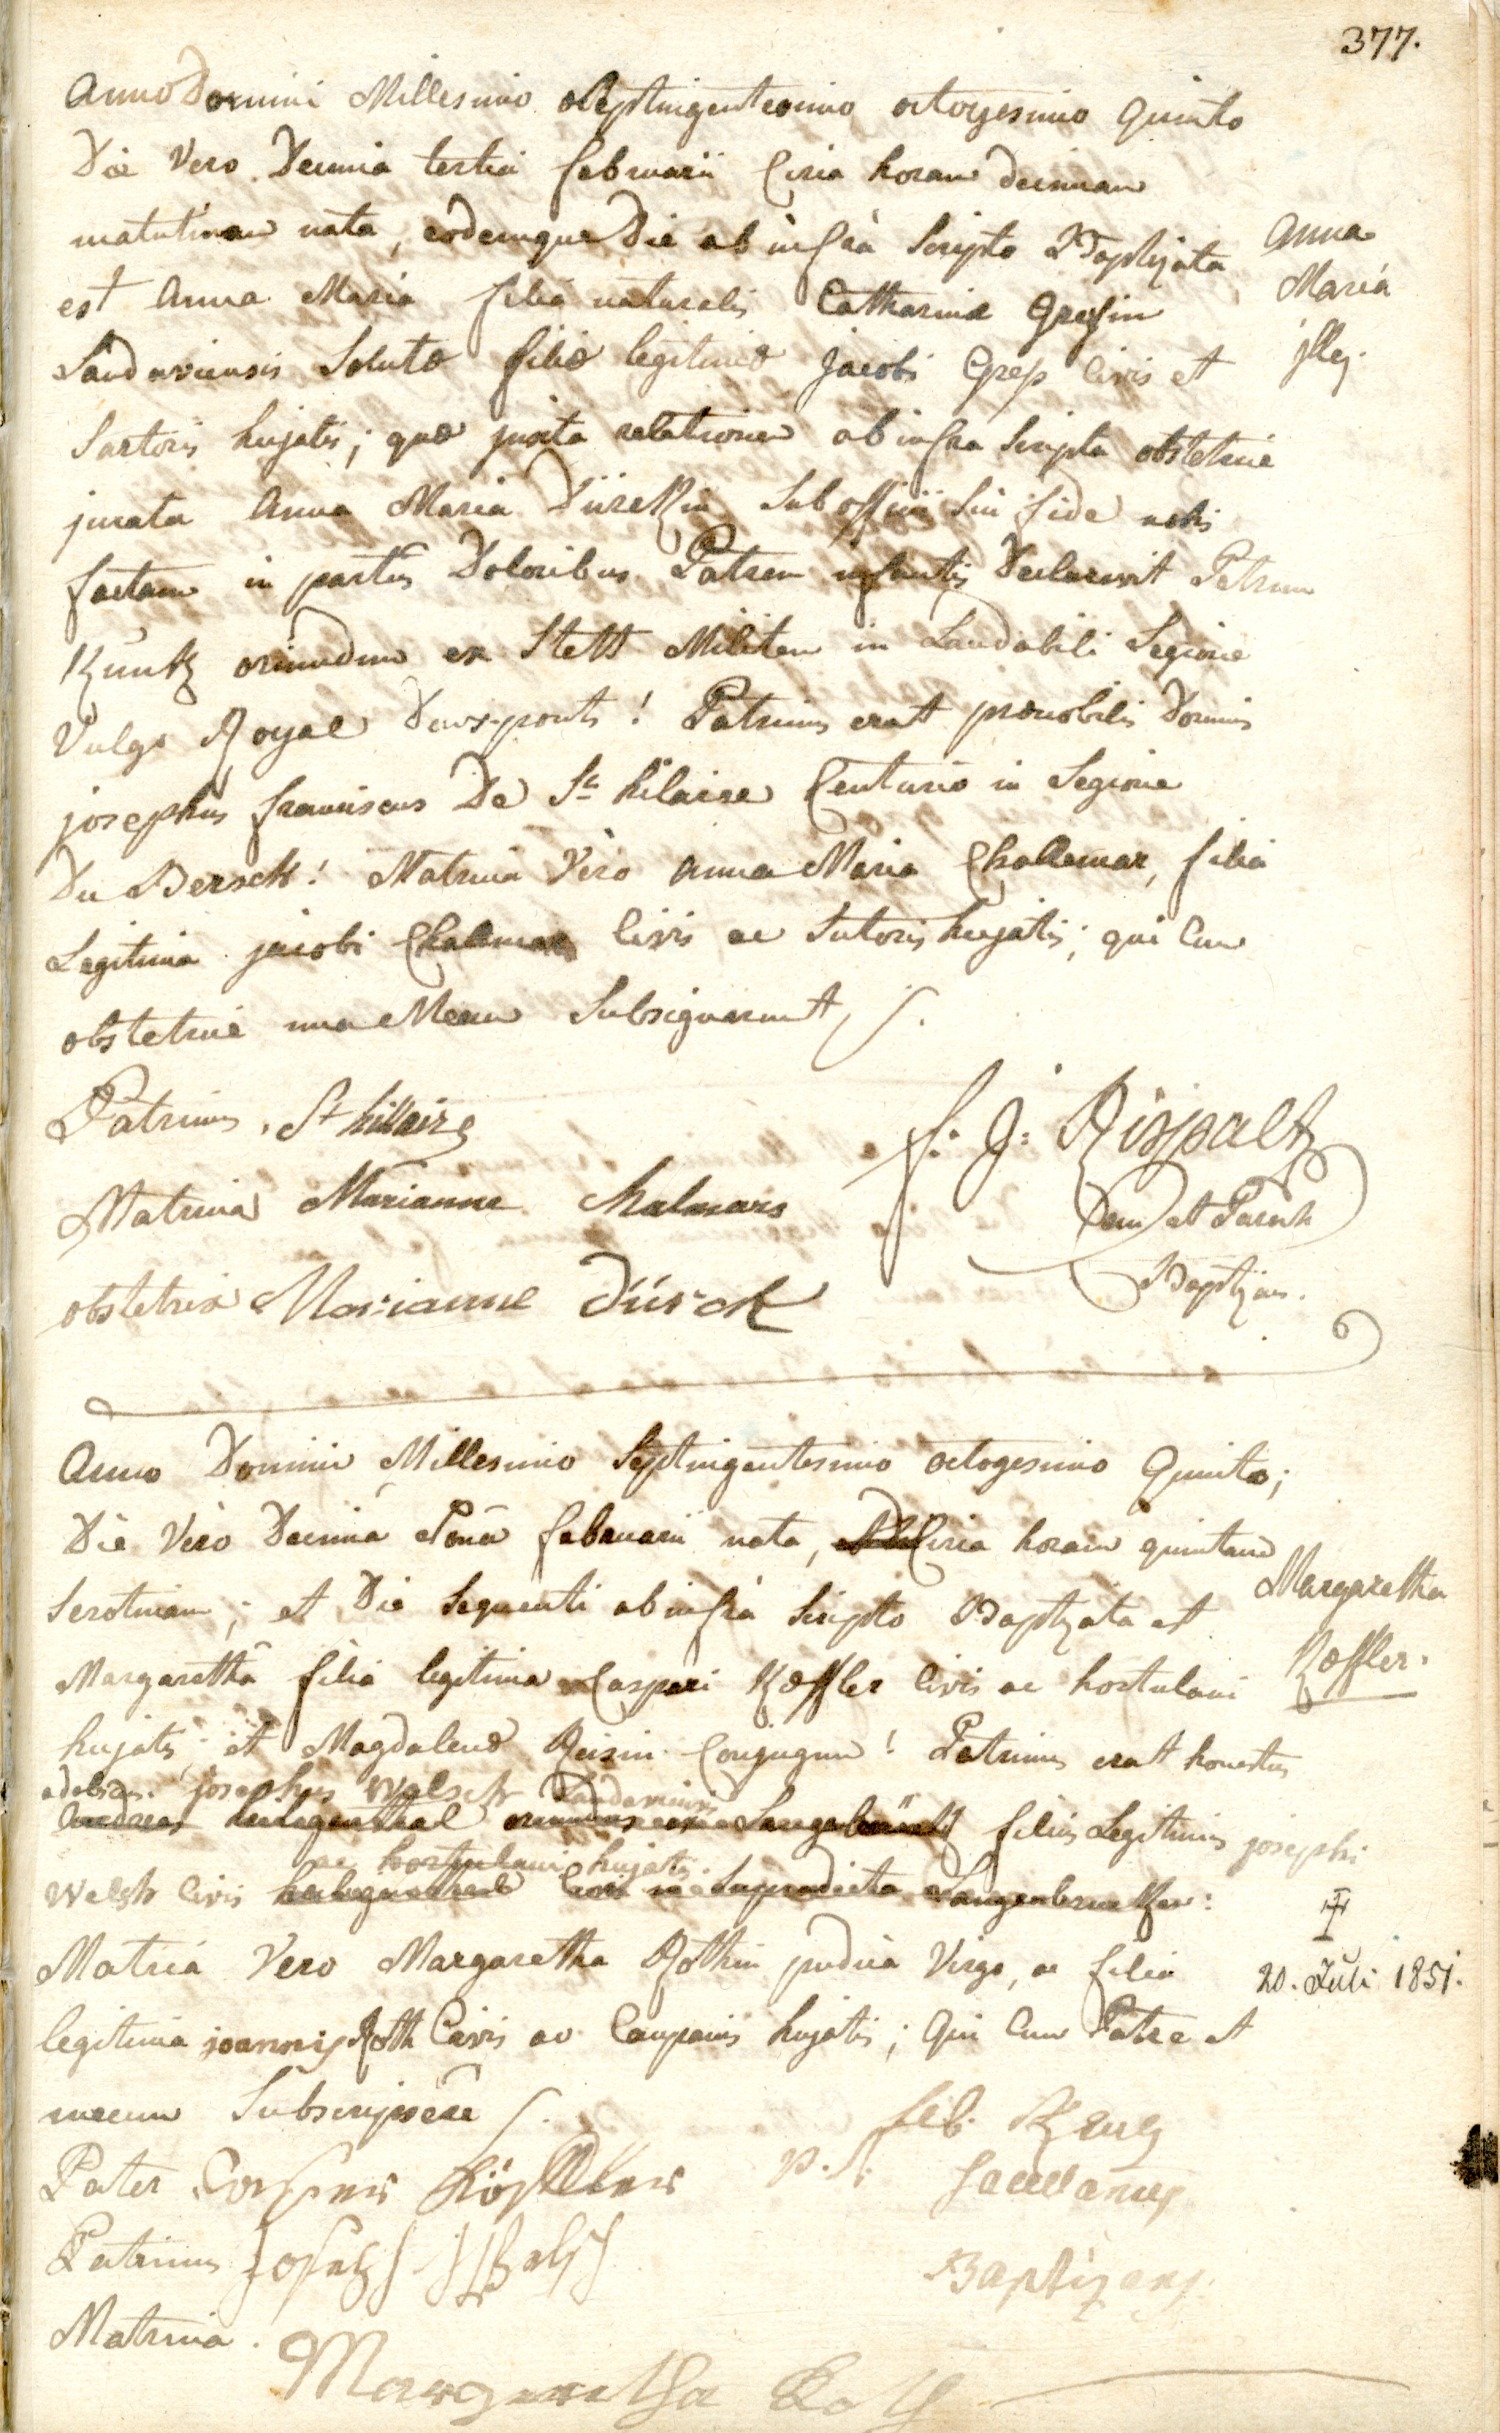 377.
Anno Domini Millesimo Septingentesimo octogesimo quinto
Die Vero Decima tertia februarii Circa horam decimam
matutinam nata, eodemque Die ab infrà Scripto Baptizata
est Anna Maria filia naturalis Catharinæ Gressin
Landaviensis Solutæ filiæ legitimæ jacobi Gress Civis et
Sartoris hujatis; quæ juxta relationem ab infra Scripta obstetrice
jurata Anna Maria Dürckin Sub officii Sui fide nobis
factam in partûs Doloribus Patrem infantis Declaravit Petrum
Kuntz oriundum ex Stett Militem in Laudabili Legione
Vulgo Royal Deux-ponts! Patrinus erat prænobilis Dominus
josephus franciscus De St hilaire Centurio in Legione
Du Bersch! Matrina Vero Anna Maria Challemar, filia
Legitima jacobi Challemar Civis ac Sutoris hujatis; qui Cum
obstetrice una Mecum Subsignarunt /.
Anna
Maria
jlleg.
Patrinus. St hillaire
Matrina Marianne Chalmars
obstetrix Marianne Dürck
f: J: Rispalt
et Paroch
Baptizans.
Anno Domini Millesimo Septingentesimo octogesimo Quinto;
Die Vero Decima Nona februarii nata, Circa horam quintam
Serotinam; et Die Sequenti ab infrà Scripto Baptizata est
Margaretha filia legitima Caspari Kœffler Civis ac hortulani
hujatis; et Magdalenæ Reisin Conjugum! Patrinus erat honestus
adolesc. josephus Welsch Landaviensis
Andreas heiligenthal oriundus filius Legitimus josephi
ac hortulani hujatis.
Welsh Civis Supradicta
Matrina Vero Margaretha Rothin pudica Virgo, ac filia
legitima joannis Roth Civis ac Cauponis hujatis; Qui Cum Patre et
mecum Subscripsêre /.
Margaretha
Kœffler.
20. Juli 1851.
Pater Casper Köffler
Patrinus Joseph Welsch
Matrina. Margaretha Roth
p.t.
Baptizans.